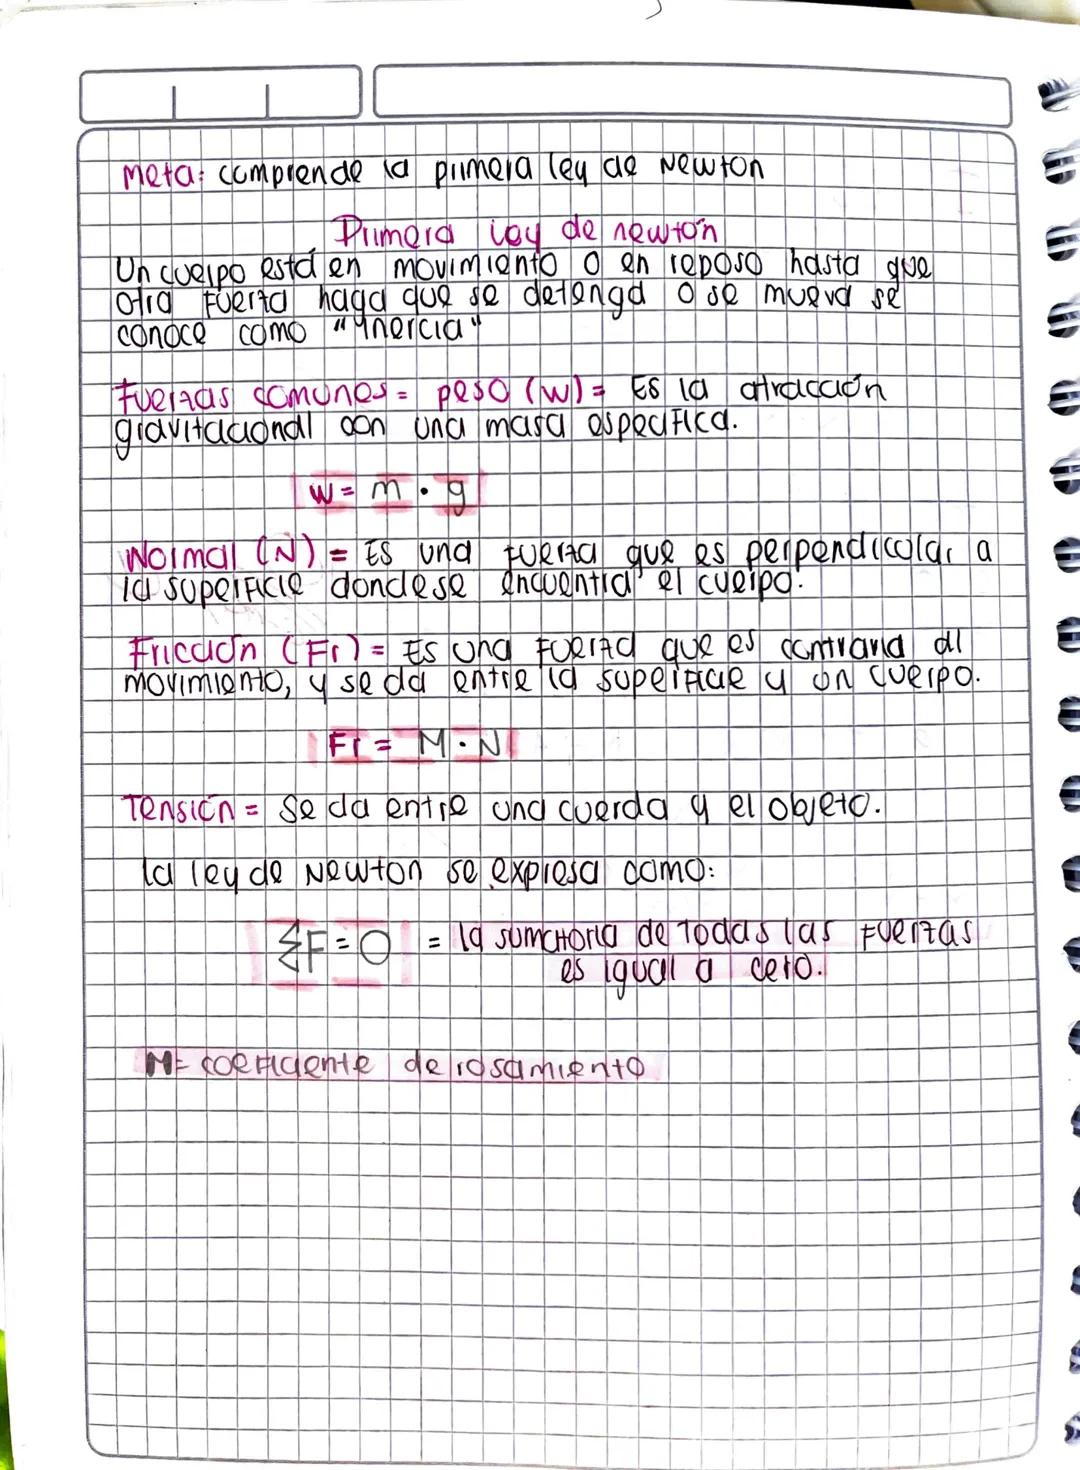 Meta: comprende la primera ley de Newton
Primera ley de newton
Un cuerpo está en movimiento o en reposo hasta que
otra fuerza haga que se detenga o se mueva se
conoce como "inercia"
Fuerzas comunes = peso (w) = Es la atracción
gravitacional con una masa especifica.
w = m · g
Normal (N) = Es una fuerza que es perpendicular a
la superficie donde se encuentra el cuerpo.
Fricción (Fr) = Es una fuerza que es contraria al
movimiento, y se da entre la superficie y un cuerpo.
Fr = M · N
Tensión = Se da entre una cuerda y el objeto.
la ley de Newton se expresa como:
ΣF = 0 = la sumatoria de todas las fuerzas
es igual a cero.
M = coeficiente de rosamiento